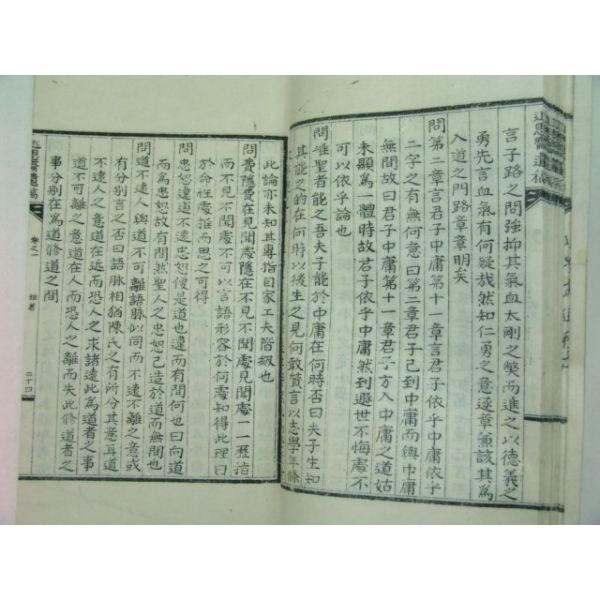 言子路之問強抑其氣血太剛之弊而進之以德義之
勇先言血氣有何疑哉然知仁勇之意逐章兼該其為
入道之門路章章明矣
問第二章言君子中庸第十一章言君子依乎中庸依乎
二字之有無何意曰第二章君子己到中庸而與中庸
無間故曰君子中庸第十一章君子方入中庸之道姑
未顯為一體時故君子依乎中庸然到遯世不悔處不
可以依乎論也
問唯聖者能之吾夫子能於中庸在何時否曰夫子生知
其能之的在何時以後生之見何敢贊言以志學年條
此論亦未知其專指自家工夫階級也
問費隱費在見聞處隱在不見不聞處一一歷指
而不見不聞處不可以言語形容於何處知得此理曰
於命性處推而思之可得
問忠恕違道不遠忠恕便是道也違而有間何也曰向道
不遠人之為道故有間然聖人之忠恕己造於道而無間也
問道不遠人與道不可離語脉似同而不遠不離之意或
有分別言之否曰語脉相猶陳氏之有所分其意耳道
不遠人之意道在邇而恐人之求諸遠此為道者之事
不可離之意道在人而恐人之離而失此修道者之
事分別在為道修道之間
近思齋遺稿
卷之二
雜著
二十四
近思齋遺稿